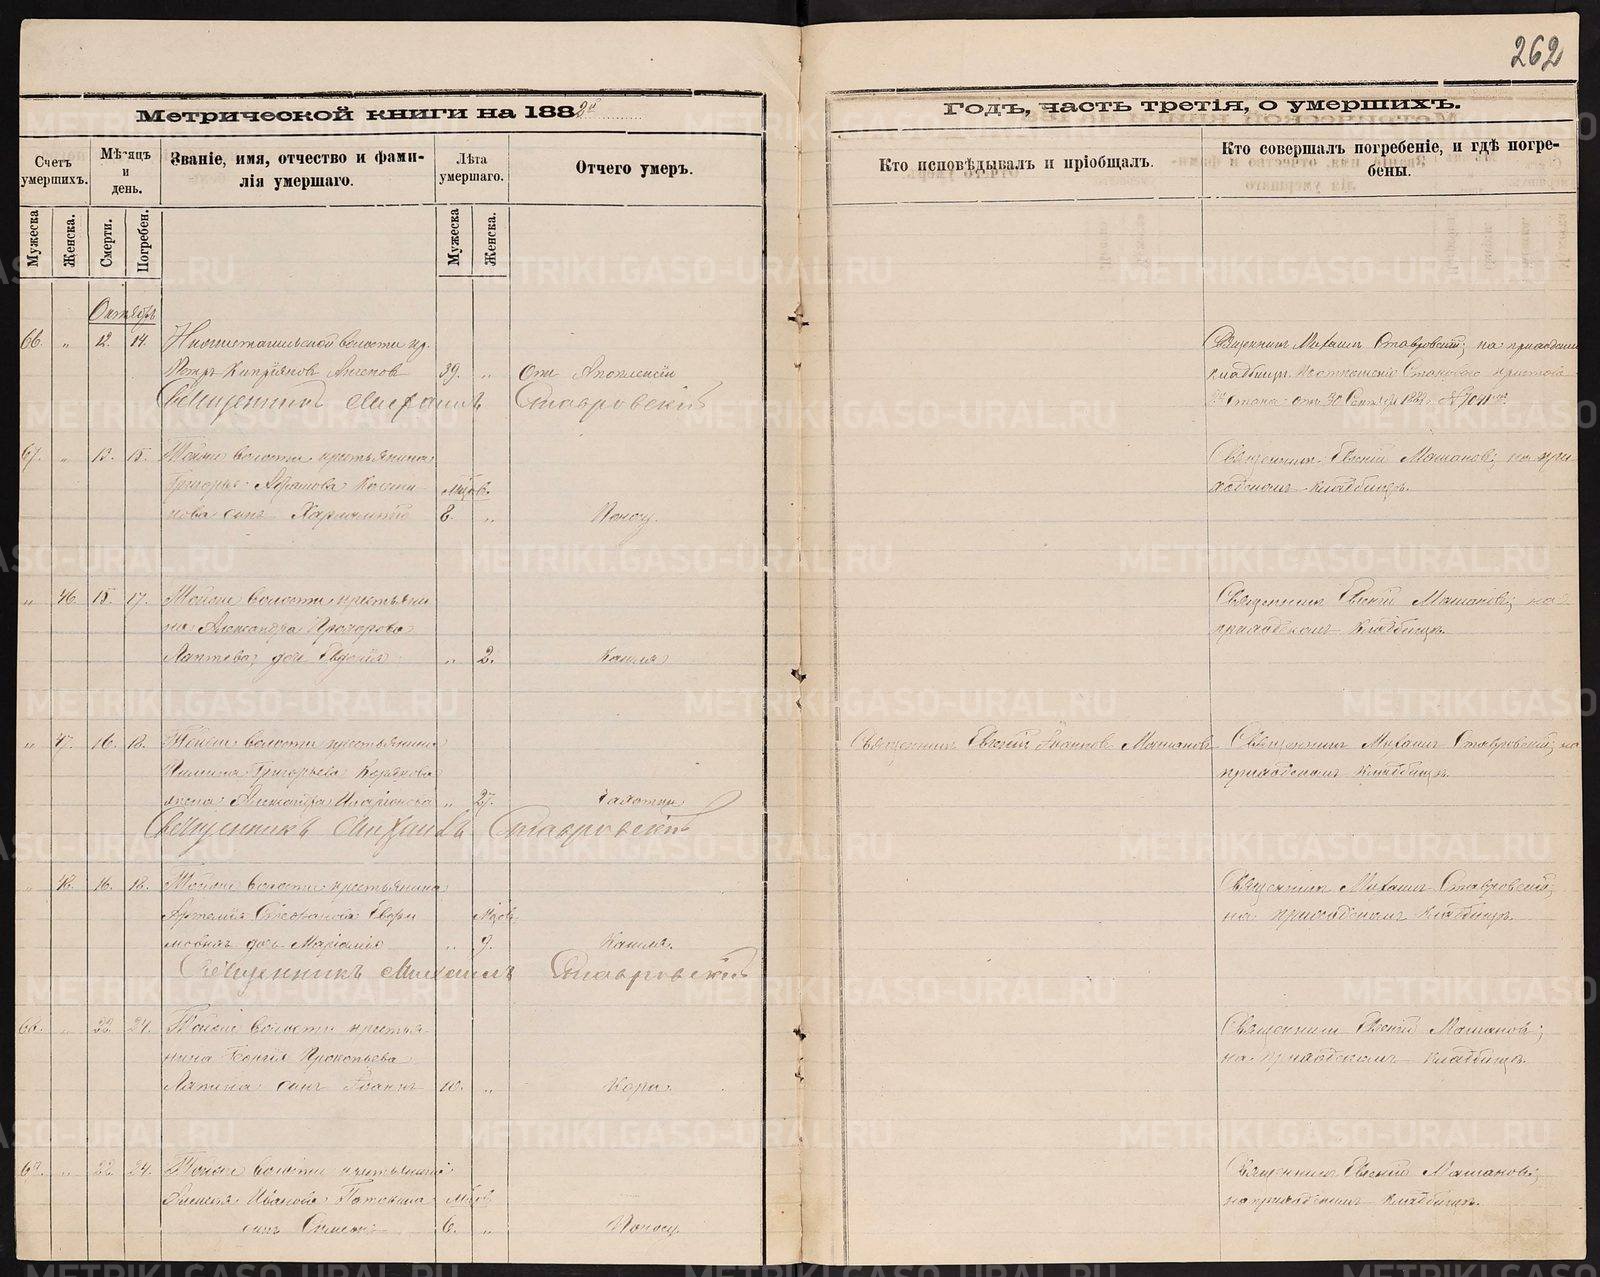 262
Метрической книги на 1882й
годъ, часть третія, о умершихъ.
Счетъ умершихъ.
Мѣсяцъ и день.
Званіе, имя, отчество и фами-
лія умершаго.
Лѣта умершаго.
Отчего умеръ.
Кто исповѣдывалъ и пріобщалъ.
Кто совершалъ погребеніе, и гдѣ погре-
бены.
Мужеска
Женска.
Смерти.
Погребен.
Мужеска
Женска.
Октябрь
66. " 12. 14. волости кр.
Петръ Кипріановъ 39. " Отъ Апоплексіи
Священникъ Михаилъ Ставровскій
Священникъ Михаилъ Ставровскій; на приходскомъ
кладбищѣ.
67. " 13. 15. Той же волости крестьянина
Григорья Абрамова мѣсяцев.
сынъ Харлампій 8. " Поносу.
Священникъ Евсевій Машановъ; на при-
ходскомъ кладбищѣ.
" 46. 15. 17. Той же волости крестьяни
на Александра Прохорова
Лаптева дочь Евдокія " 2. Кашля
Священникъ Евсевій Машановъ; на
приходскомъ кладбищѣ.
" 47. 16. 18. Той же волости крестьянина
Григорьева Корякова
жена Александра Иларіонова " 27. Чахотки
Священникъ Михаилъ Ставровскій
Священникъ Евсевій Іоанновъ Машановъ
Священникъ Михаилъ Ставровскій; на
приходскомъ кладбищѣ.
" 48. 16. 18. Той же волости крестьянина
Артемія Стефанова Мѣсов.
дочь Маріамія " 9. Кашля.
Священникъ Михаилъ Ставровскій
Священникъ Михаилъ Ставровскій;
на приходскомъ кладбищѣ.
68. " 22. 24. Той же волости крестья-
нина Георгія Прокопьева
Лапина сынъ Іоаннъ 10. " Кори.
Священникъ Евсевій Машановъ;
на приходскомъ кладбищѣ.
69. " 22. 24. Той же волости крестьянина
Иванова мѣсов.
сынъ Симеонъ 6. " Поносу.
Священникъ Евсевій Машановъ;
на приходскомъ кладбищѣ.
METRIKI.GASO-URAL.RU